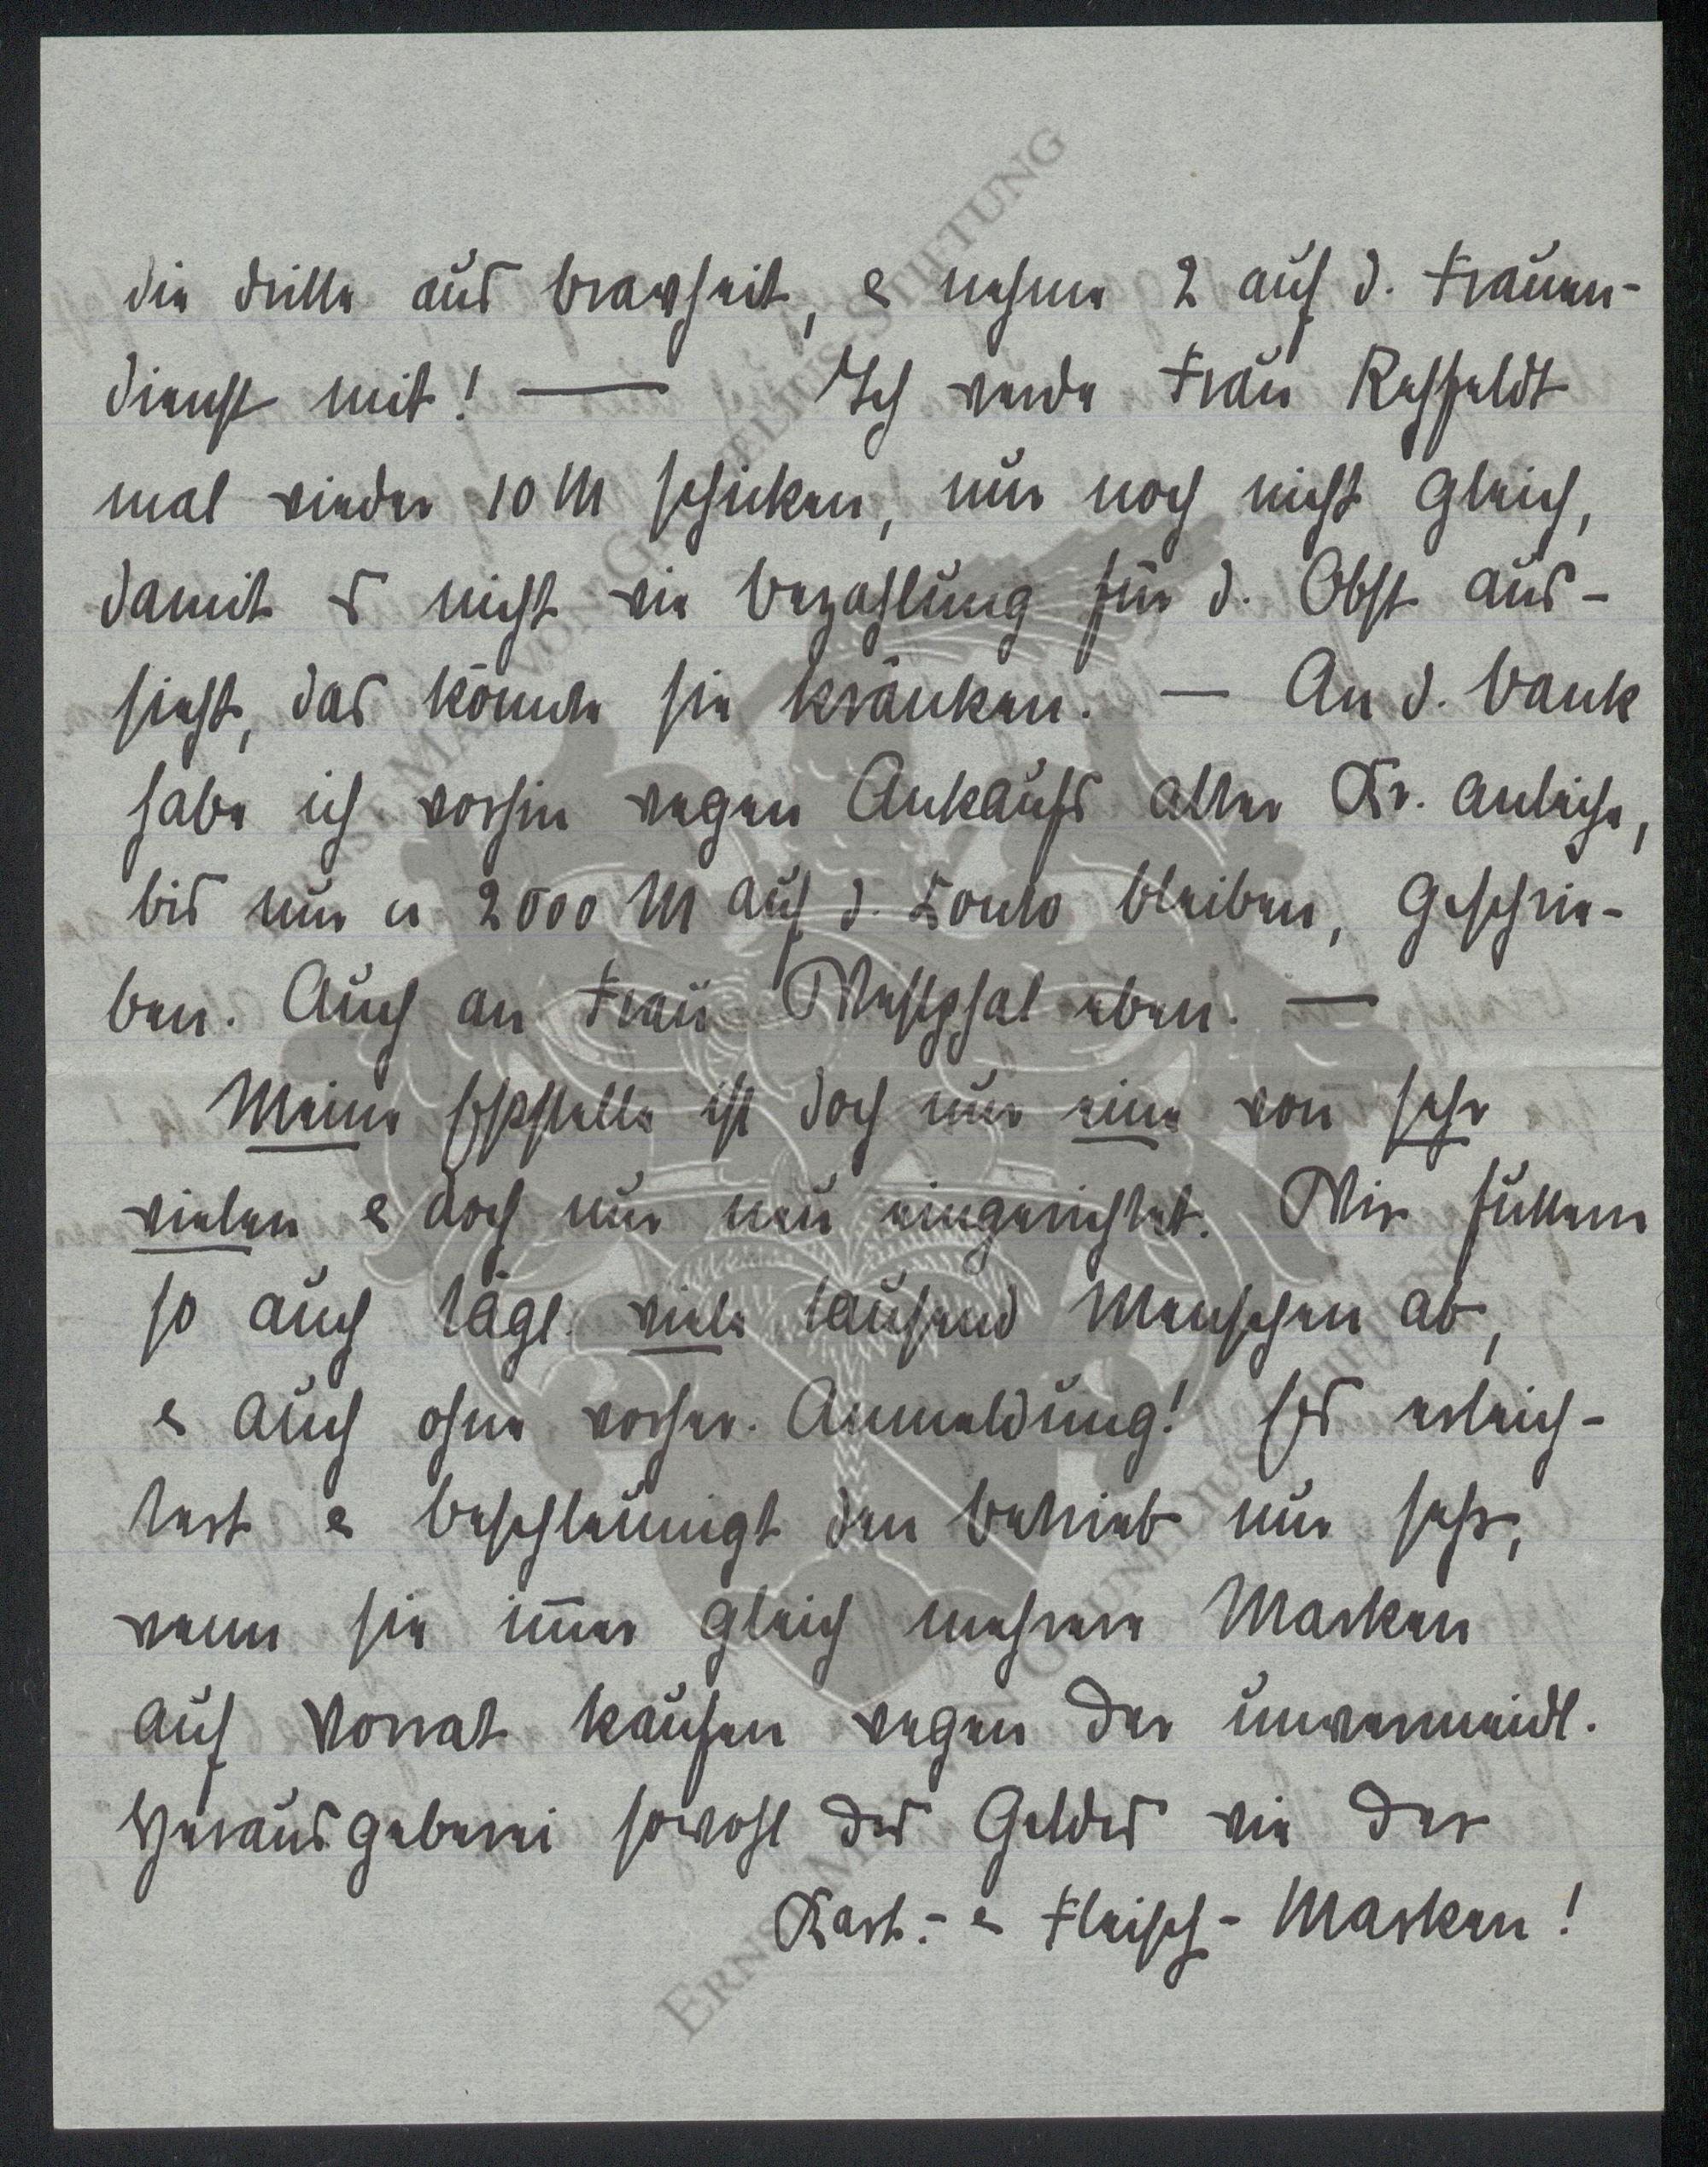 die dritte aus Bravheit, & nehme 2 auf d. Frauen-
dienst mit! — Ich werde Frau Rehfeldt
mal wieder 10 M schicken, nur noch nicht gleich,
damit es nicht wie Bezahlung für d. Obst aus-
sieht, das könnte sie kränken. — An d. Bank
habe ich vorhin wegen Ankaufs alter Kr. Anleihe,
bis nur 2000 M auf d. Konto bleiben, geschrie-
ben. Auch an Frau Westphal eben. —
Meine Eßstelle ist doch nur eine von sehr
vielen & doch nur neu eingerichtet. Wir füttern
so auch tägl. viele tausend Menschen ab,
& auch ohne vorher. Anmeldung! Es erleich-
tert & beschleunigt den Betrieb nur sehr,
wenn sie im̅er gleich mehrere Marken
auf Vorrat kaufen wegen der unvermeidl.
Herausgeberei sowohl des Geldes wie der
Kart.- & Fleisch-Marken!
ERNST MAX VON GRUNELIUS-STIFTUNG
ERNST MAX VON GRUNELIUS-STIFTUNG